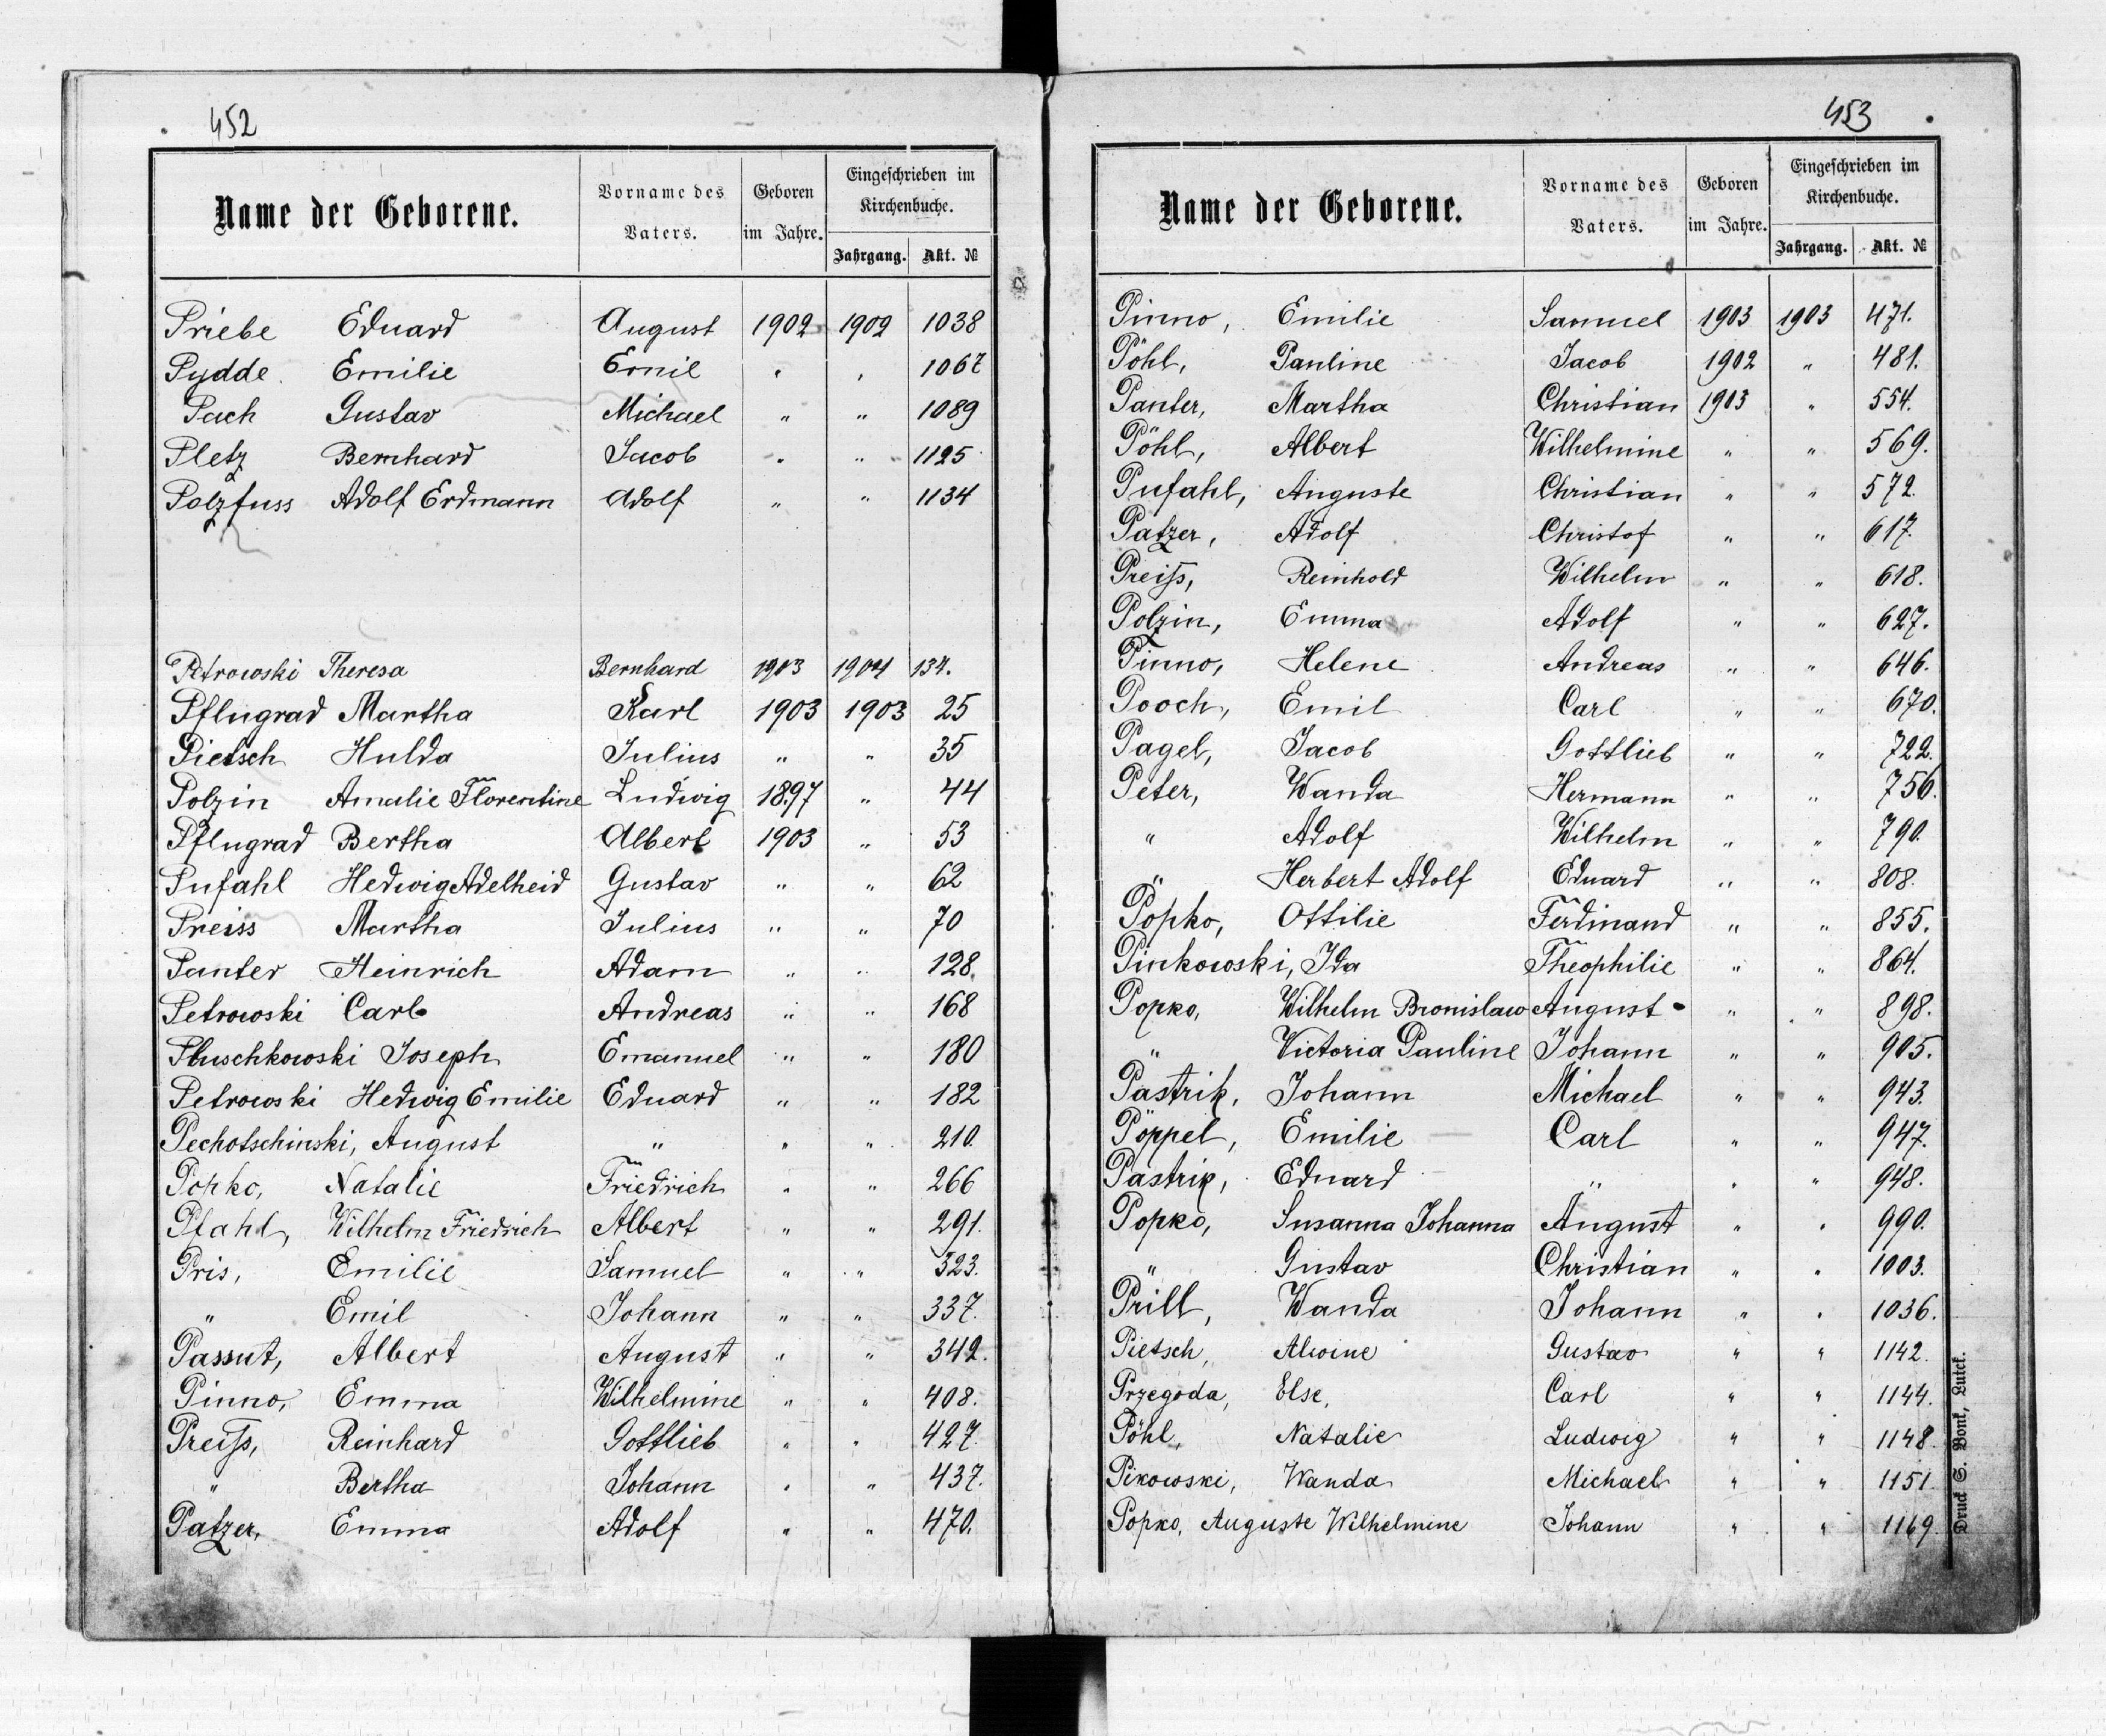 452
Name der Geborene. Vorname des Vaters. Geboren im Jahre. Eingeschrieben im Kirchenbuche. Jahrgang. Akt. №
Priebe Eduard August 1902 1902 1038
Pydde Emilie Emil " " 1067
Pach Gustav Michael " " 1089
Pletz Bernhard Jacob " " 1125
Polzfuss Adolf Erdmann Adolf " " 1134
Petrowski Theresa Bernhard 1903 1904 134.
Pflugrad Martha Karl 1903 1903 25
Pietsch Hulda Julius " " 35
Polzin Amalie Florentine Ludwig 1897 " 44
Pflugrad Bertha Albert 1903 " 53
Pufahl Hedwig Adelheid Gustav " " 62
Preiss Martha Julius " " 70
Panter Heinrich Adam " " 128.
Petrowski Carl Andreas " " 168
Pluschkowski Joseph Emanuel " " 180
Petrowski Hedwig Emilie Eduard " " 182
Pechotschinski, August " " " 210.
Popko, Natalie Friedrich " " 266
Pfahl, Wilhelm Friedrich Albert " " 291.
Pris, Emilie Samuel " " 323.
" Emil Johann " " 337.
Passut, Albert August " " 342.
Pinno, Emma Wilhelmine " " 408.
Preiß, Reinhard Gottlieb " " 427.
" Bertha Johann " " 437.
Patzer, Emma Adolf " " 470.
453
Name der Geborene. Vorname des Vaters. Geboren im Jahre. Eingeschrieben im Kirchenbuche. Jahrgang. Akt. №
Pinno, Emilie Samuel 1903 1903 471.
Pöhl, Pauline Jacob 1902 " 481.
Panter, Martha Christian 1903 " 554.
Pöhl, Albert Wilhelmine " " 569.
Pufahl, Auguste Christian " " 572.
Patzer, Adolf Christof " " 617.
Preiß, Reinhold Wilhelm " " 618.
Polzin, Emma Adolf " " 627.
Pinno, Helene Andreas " " 646.
Pooch, Emil Carl " " 670.
Pagel, Jacob Gottlieb " " 722.
Peter, Wanda Hermann " " 756.
" Adolf Wilhelm " " 790.
" Herbert Adolf Eduard " " 808.
Popko, Ottilie Ferdinand " " 855.
Pinkowski, Ida Theophilie " " 864.
Popko, Wilhelm Bronislaw August " " 898.
" Victoria Pauline Johann " " 905.
Pastrik, Johann Michael " " 943.
Pöppel, Emilie Carl " " 947.
Pastrik, Eduard " " " 948.
Popko, Susanna Johanna August " " 990.
" Gustav Christian " " 1003.
Prill, Wanda Johann " " 1036.
Pietsch, Alwine Gustav " " 1142.
Przegoda, Else, Carl " " 1144.
Pöhl, Natalie Ludwig " " 1148.
Pikowski, Wanda Michael " " 1151.
Popko, Auguste Wilhelmine Johann " " 1169.
Druck S. Bonk, Luick.